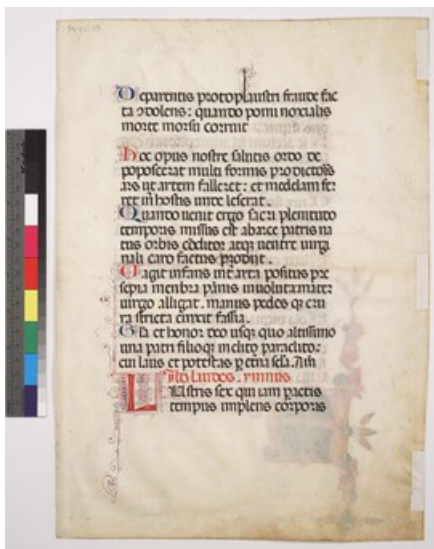 De parentis protoplaustri fraude fac
ta 9dolens: quando pomi noxialis
morte morsu corruit
Hoc opus nostre salutis ordo de
poposcerat multi formis proditoris
ars ut artem falleret: et medelam fer
ret in hostis unde leserat.
Quando uenit ergo sacri plenitudo
temporis missus est ab arce patris na
tus orbis cōditor atq; uentre uirgi
nali caro factus prodijt.
Uagit infans int̄ arta positus pre
sepia menbra pānis inuoluta mater
uirgo alligat. manus pedes q; cru
ra stricta cinxit fassia.
Gl̄a et honor deo usq; quo altissimo
una patri filioq; inclito paraclito:
cui laus et potestas p̄ et̄na sc̄la. Am̄
Ad laudes. ymnus
Lustris sex qui iam pactis
tempus implens corporis